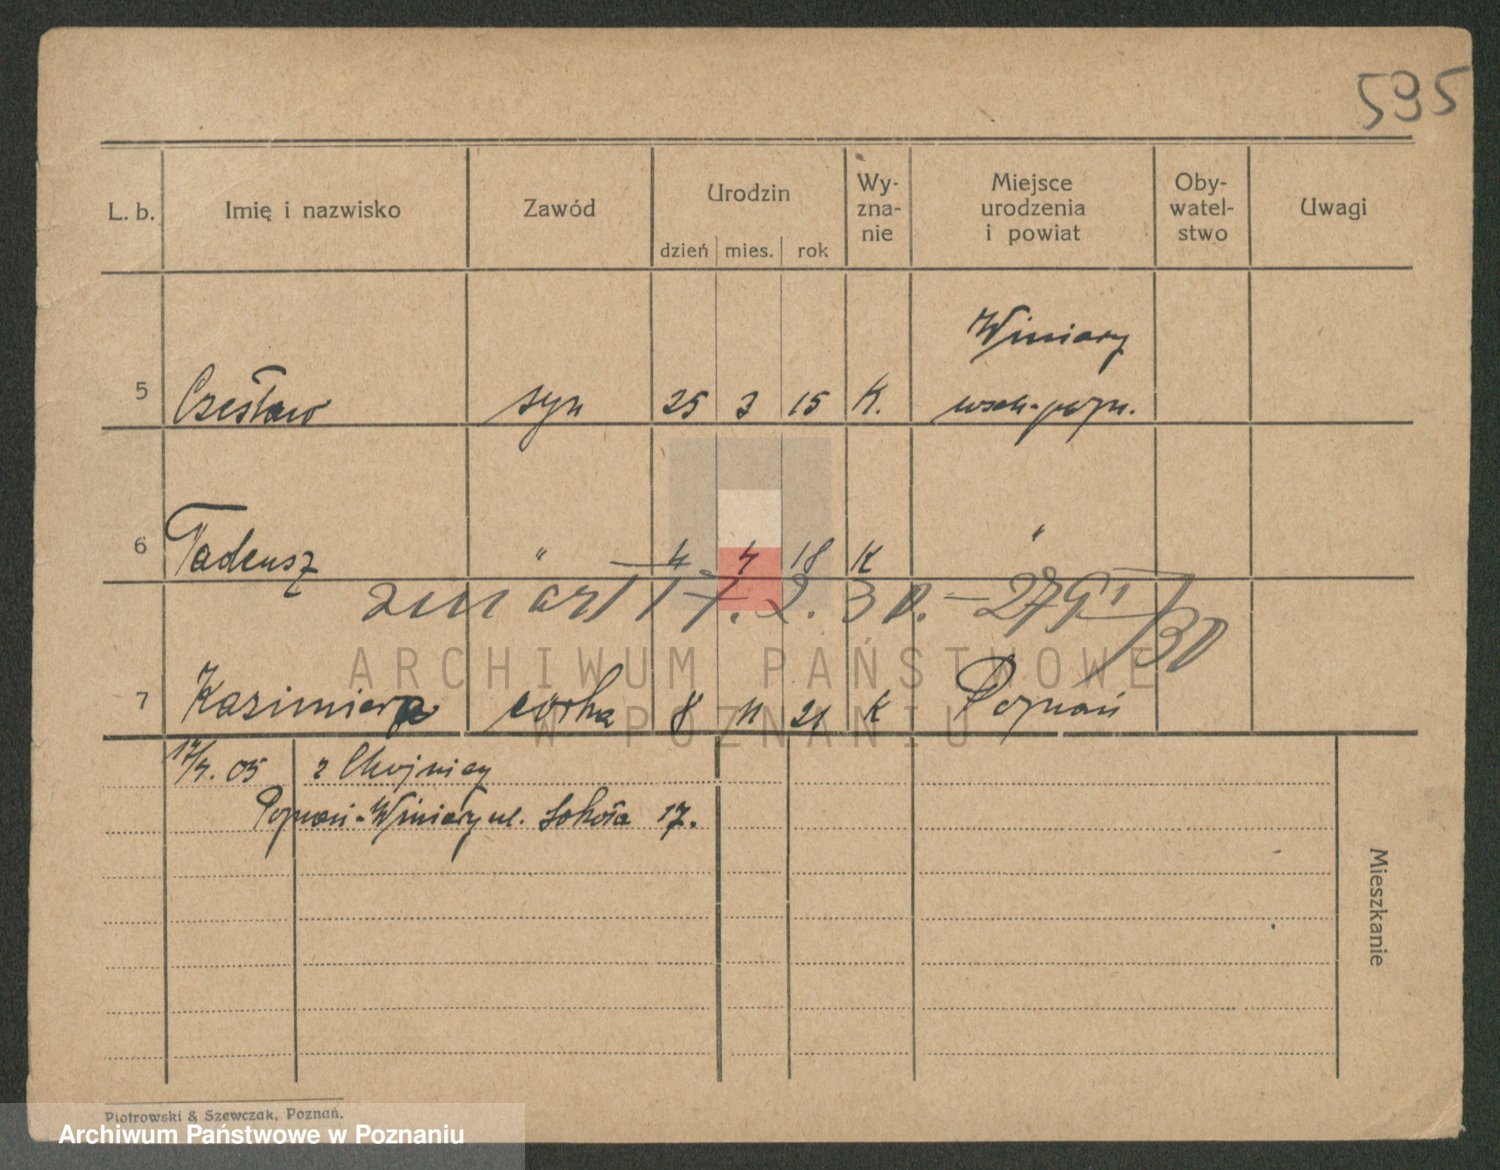 595
L. b. Imię i nazwisko Zawód Urodzin dzień mies. rok Wy-zna-nie Miejsce urodzenia i powiat Oby-watel-stwo Uwagi
Winiary
5 Czesław syn 25 3 15 K. wsch-pozn.
6 Tadeusz " 4 4 18 K "
zmarł 17.2.30. – 279
ARCHIWUM PAŃSTWOWE
7 Kazimiera córka 8 11 21 K Poznań
W POZNANIU
17/4. 05 z Chojnicy
Poznań-Winiary ul. Sokoła 17.
Mieszkanie
Piotrowski & Szewczak, Poznań.
Archiwum Państwowe w Poznaniu